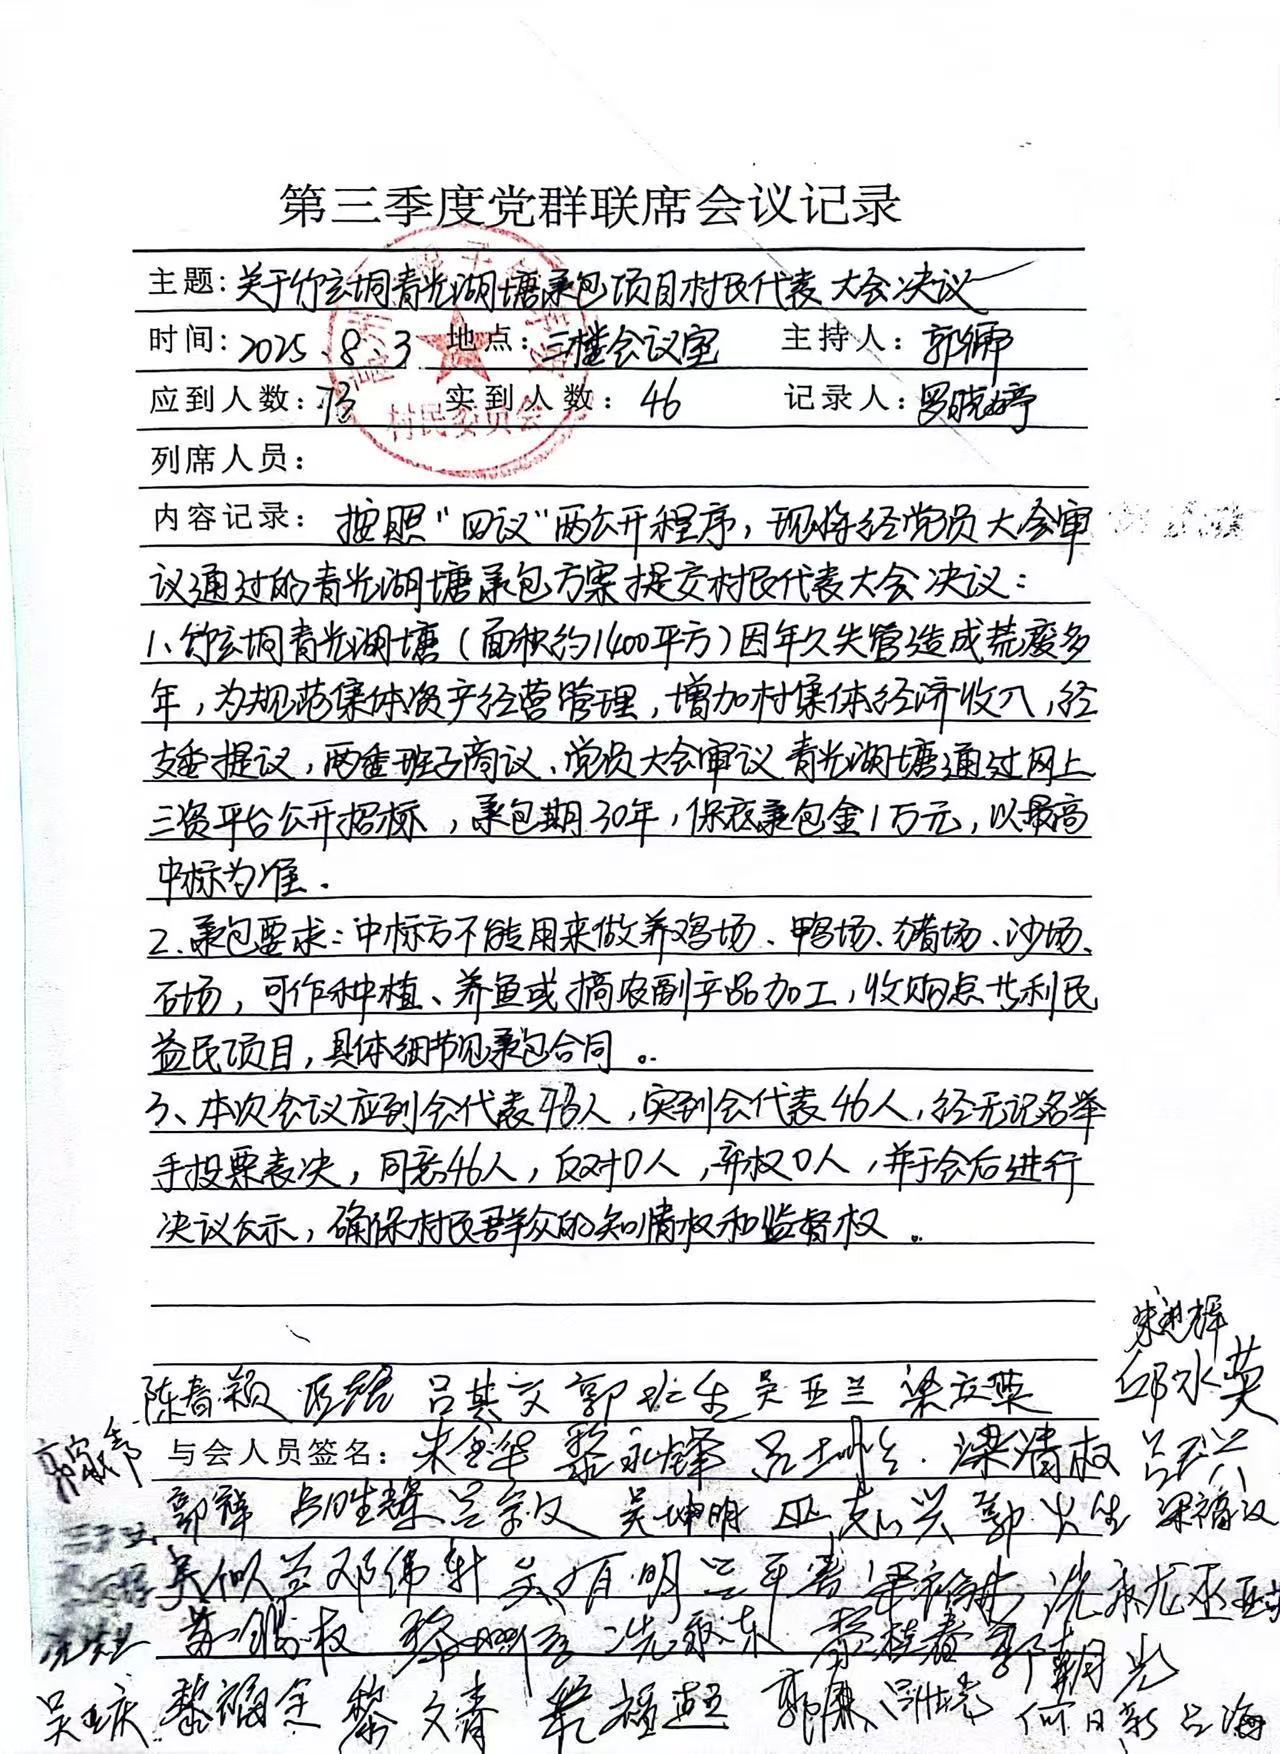 第三季度党群联席会议记录
主题:关于竹玄垌青光湖塘承包项目村民代表大会决议
时间:2025.8.3 地点:三楼会议室 主持人:郭
应到人数:73 实到人数:46 记录人:罗晓婷
村民委员会
列席人员:
内容记录:按照“四议”两公开程序,现将经党员大会审
议通过的青光湖塘承包方案提交村民代表大会决议:
1、竹玄垌青光湖塘(面积约1400平方)因年久失管造成荒废多
年,为规范集体资产经营管理,增加村集体经济收入,经
支委提议,两委班子商议、党员大会审议青光湖塘通过网上
三资平台公开招标,承包期30年,保底承包金1万元,以最高
中标为准.
2.承包要求:中标方不能用来做养鸡场、鸭场、猪场、沙场、
石场,可作种植、养鱼或搞农副产品加工,收购点等利民
益民项目,具体细节见承包合同。
3、本次会议应到会代表73人,实到会代表46人,经无记名举
手投票表决,同意46人,反对0人,弃权0人,并于会后进行
决议公示,确保村民群众的知情权和监督权。
邱水英
陈春颖 吕其文 郭 吴亚兰 梁
与会人员签名: 朱金华 黎永锋 梁清权
郭辉 吕胜 吴坤明 巫志兴 郭火生 梁福汉
吴似兰 邓伟轩 有明 冼永龙 巫亚
权 冼 黎桂春 郭朝光
吴 庆 黎福全 黎文青 郭 何日新 吕海